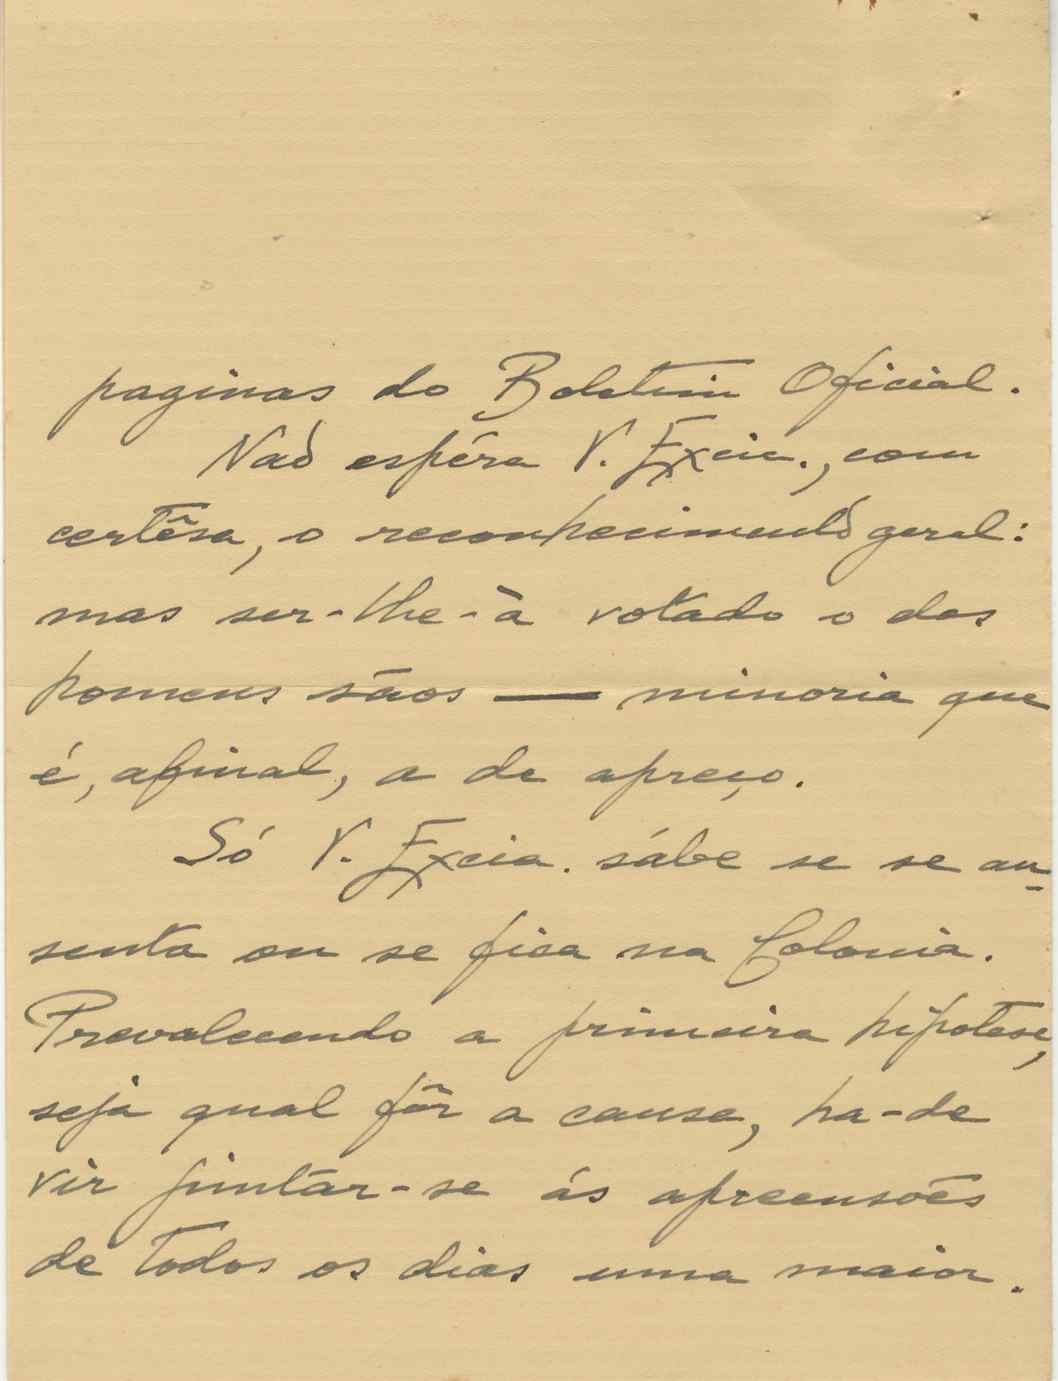 paginas do Boletim Oficial.
Naõ espéra V. Excia., com
certêsa, o reconhecimento geral:
mas ser-lhe-à votado o dos
homens sãos — minoria que
é, afinal, a de apreço.
Só V. Excia. sábe se se au-
senta ou se fica na Colonia.
Prevalecendo a primeira hipotese,
seja qual fôr a causa, ha-de
vir juntar-se ás apreensões
de todos os dias uma maior.